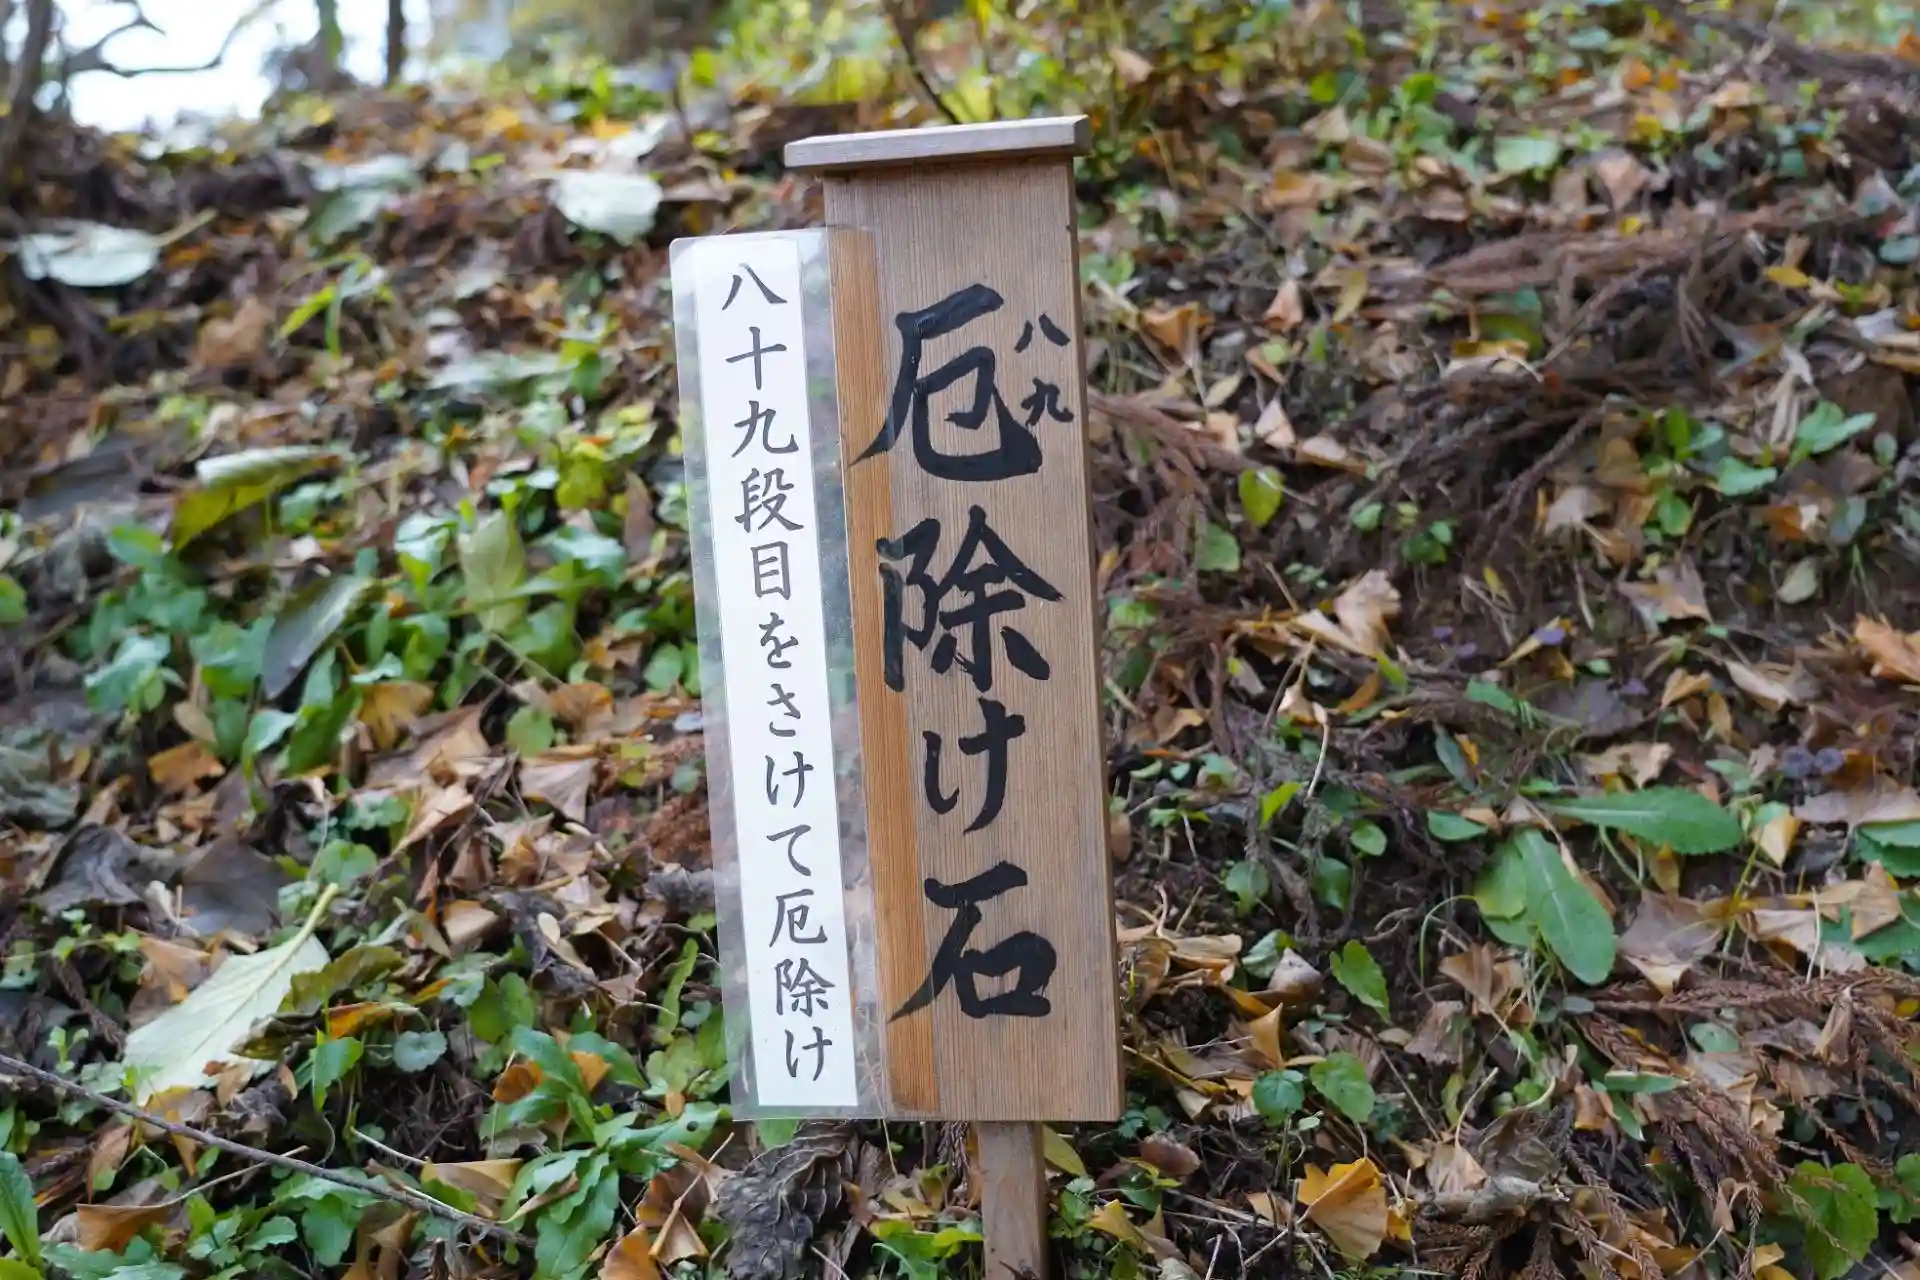 八九
厄除け石
八十九段目をさけて厄除け